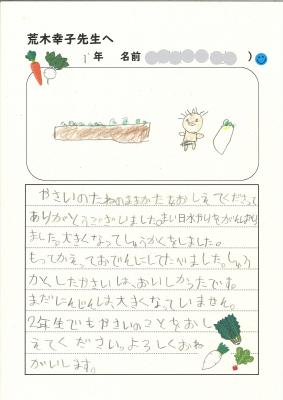 荒木幸子先生へ
1年 名前 )
やさいのたねのまきかたをおしえてくださって
ありがとうございました。まい日水やりをがんばり
ました。大きくなってしゅうかくをしました。
もってかえっておでんにしてたべました。しゅう
かくしたやさいは、おいしかったです。
まだにんじんは、大きくなっていません。
2年生でもやさいのことをおし
えてください。よろしくおね
がいします。